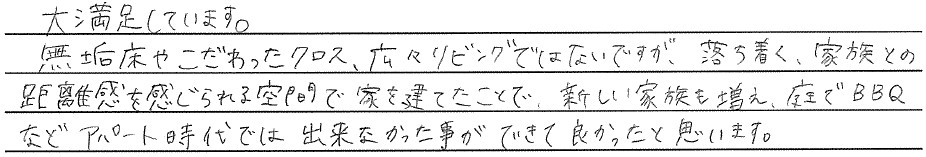 大満足しています。
無垢床やこだわったクロス、広々リビングではないですが、落ち着く、家族との
距離感を感じられる空間で家を建てたことで、新しい家族も増え、庭でBBQ
などアパート時代では出来なかった事ができて良かったと思います。